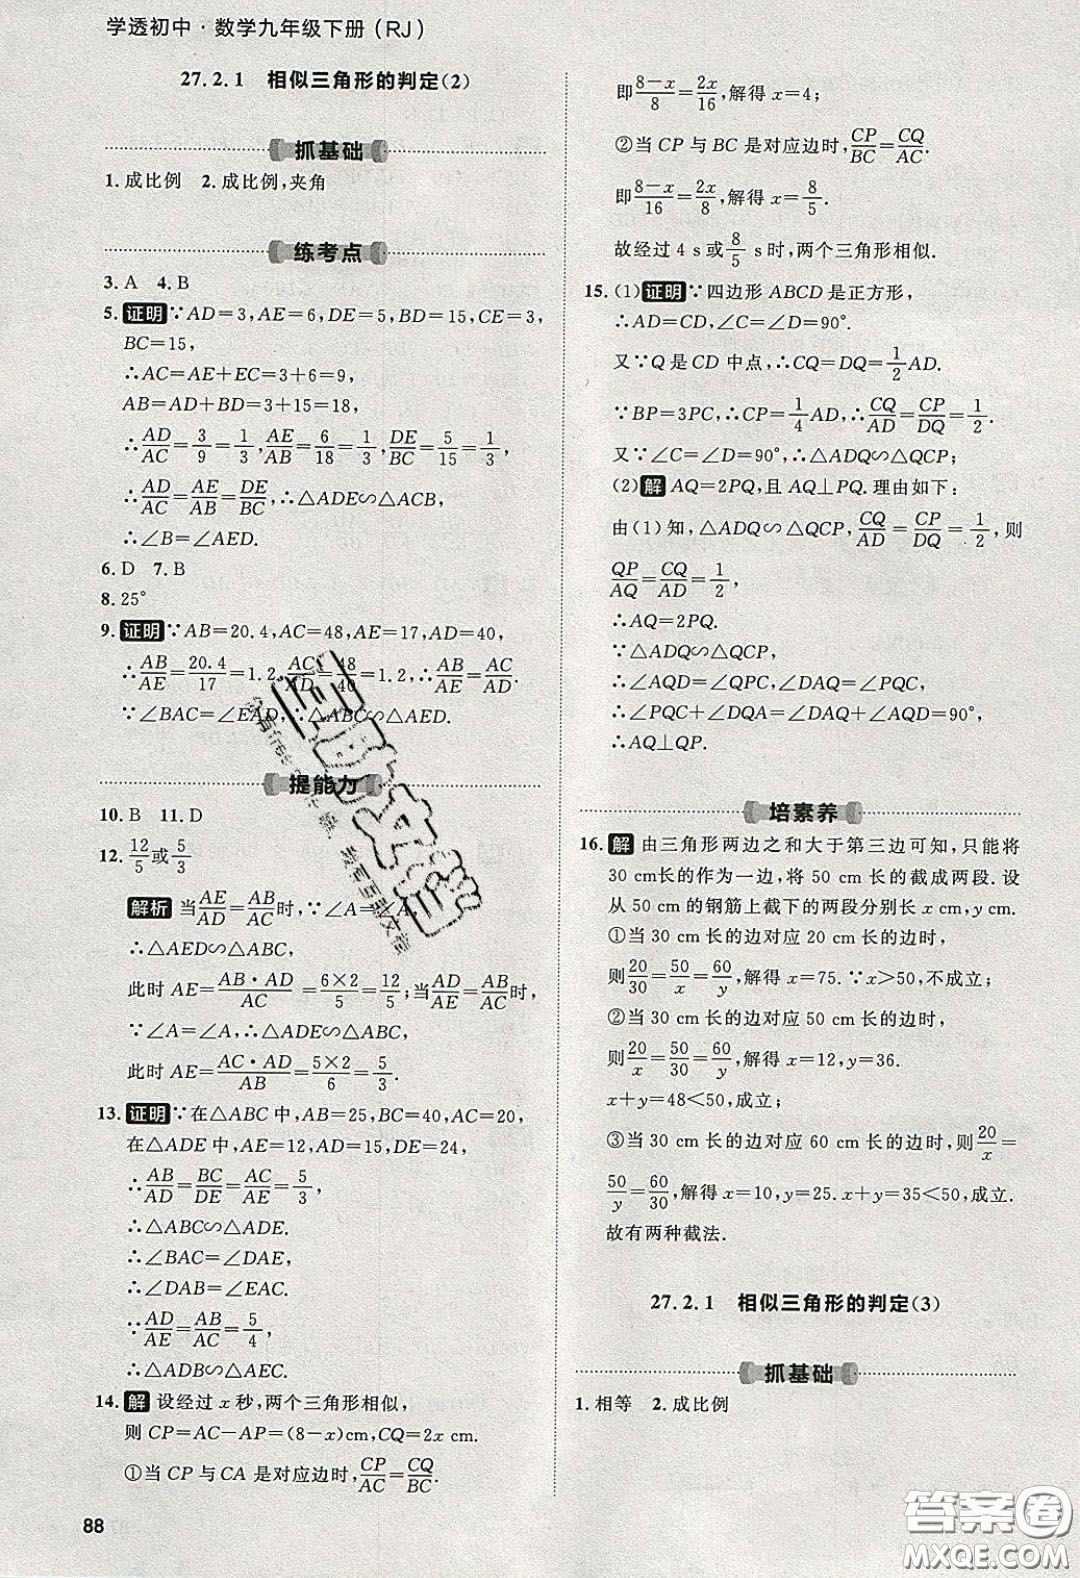 学透初中·数学九年级下册(RJ)
27.2.1 相似三角形的判定(2)
抓基础
1.成比例 2.成比例,夹角
练考点
3. A 4. B
5. 证明 ∵AD=3,AE=6,DE=5,BD=15,CE=3,
BC=15,
∴AC=AE+EC=3+6=9,
AB=AD+BD=3+15=18,
∴AD/AC=3/9=1/3,AE/AB=6/18=1/3,DE/BC=5/15=1/3,
∴AD/AC=AE/AB=DE/BC,∴△ADE∽△ACB,
∴∠B=∠AED.
6. D 7. B
8. 25°
9. 证明 ∵AB=20.4,AC=48,AE=17,AD=40,
∴AB/AE=20.4/17=1.2,AC/AD=48/40=1.2,∴AB/AE=AC/AD.
∵∠BAC=∠EAD,∴△ABC∽△AED.
提能力
10. B 11. D
12. 12/5或5/3
解析 当AE/AD=AB/AC时,∵∠A=∠A,
∴△AED∽△ABC,
此时 AE=AB·AD/AC=6×2/5=12/5;当AD/AE=AB/AC时,
∵∠A=∠A,∴△ADE∽△ABC,
此时 AE=AC·AD/AB=5×2/6=5/3.
13. 证明 ∵在△ABC 中,AB=25,BC=40,AC=20,
在△ADE 中,AE=12,AD=15,DE=24,
∴AB/AD=BC/DE=AC/AE=5/3,
∴△ABC∽△ADE.
∴∠BAC=∠DAE,
∴∠DAB=∠EAC.
∵AD/AE=AB/AC=5/4,
∴△ADB∽△AEC.
14. 解 设经过 x 秒,两个三角形相似,
则 CP=AC-AP=(8-x)cm,CQ=2x cm.
①当 CP 与 CA 是对应边时,CP/AC=CQ/BC.
88
即8-x/8=2x/16,解得 x=4;
②当 CP 与 BC 是对应边时,CP/BC=CQ/AC.
即8-x/16=2x/8,解得 x=8/5.
故经过 4 s或8/5 s时,两个三角形相似.
15. (1)证明 ∵四边形 ABCD 是正方形,
∴AD=CD,∠C=∠D=90°.
又∵Q 是 CD 中点,∴CQ=DQ=1/2AD.
∵BP=3PC,∴CP=1/4AD,∴CQ/AD=CP/DQ=1/2.
又∵∠C=∠D=90°,∴△ADQ∽△QCP;
(2)解 AQ=2PQ,且 AQ⊥PQ.理由如下:
由(1)知,△ADQ∽△QCP,CQ/AD=CP/DQ=1/2,则
QP/AQ=CQ/AD=1/2,
∴AQ=2PQ.
∵△ADQ∽△QCP,
∴∠AQD=∠QPC,∠DAQ=∠PQC,
∴∠PQC+∠DQA=∠DAQ+∠AQD=90°,
∴AQ⊥QP.
培素养
16. 解 由三角形两边之和大于第三边可知,只能将
30 cm长的作为一边,将 50 cm 长的截成两段.设
从 50 cm 的钢筋上截下的两段分别长 x cm,y cm.
①当 30 cm 长的边对应 20 cm 长的边时,
则20/30=50/x=60/y,解得 x=75.∵x>50,不成立;
②当 30 cm 长的边对应 50 cm 长的边时,
则20/x=50/30=60/y,解得 x=12,y=36.
x+y=48<50,成立;
③当 30 cm 长的边对应 60 cm 长的边时,则20/x=
50/y=60/30,解得 x=10,y=25.x+y=35<50,成立.
故有两种截法.
27.2.1 相似三角形的判定(3)
抓基础
1.相等 2.成比例
答案圈
MXQE.COM